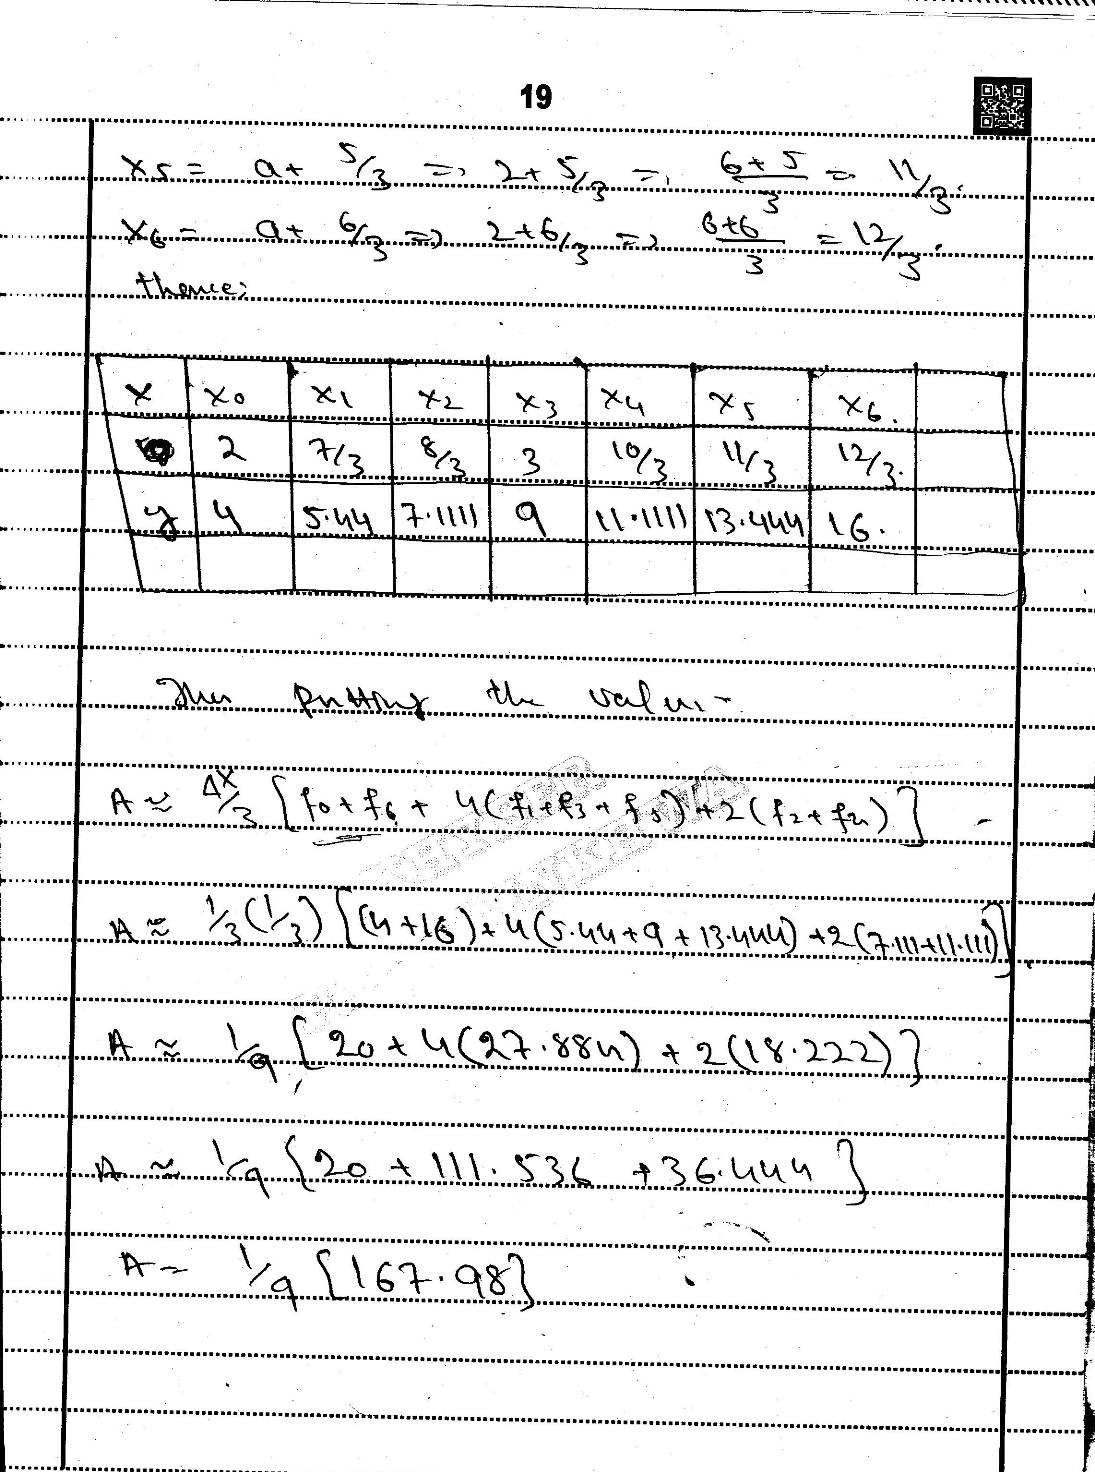 19
x5 = a + 5/3 => 2 + 5/3 => (6+5)/3 => 11/3.
x6 = a + 6/3 => 2+6/3 => (6+6)/3 = 12/3.
thence;
x x0 x1 x2 x3 x4 x5 x6.
2 7/3 8/3 3 10/3 11/3 12/3.
y 4 5.44 7.1111 9 11.1111 13.444 16.
putting the value -
A ≈ Δx/3 [f0 + f6 + 4(f1+f3+f5) + 2(f2+f4)]
A ≈ 1/3 (1/3) [(4+16) + 4(5.44+9+13.444) + 2(7.111+11.111)].
A ≈ 1/9 [20 + 4(27.884) + 2(18.222)]
A ≈ 1/9 [20 + 111.536 + 36.444]
A = 1/9 [167.98]